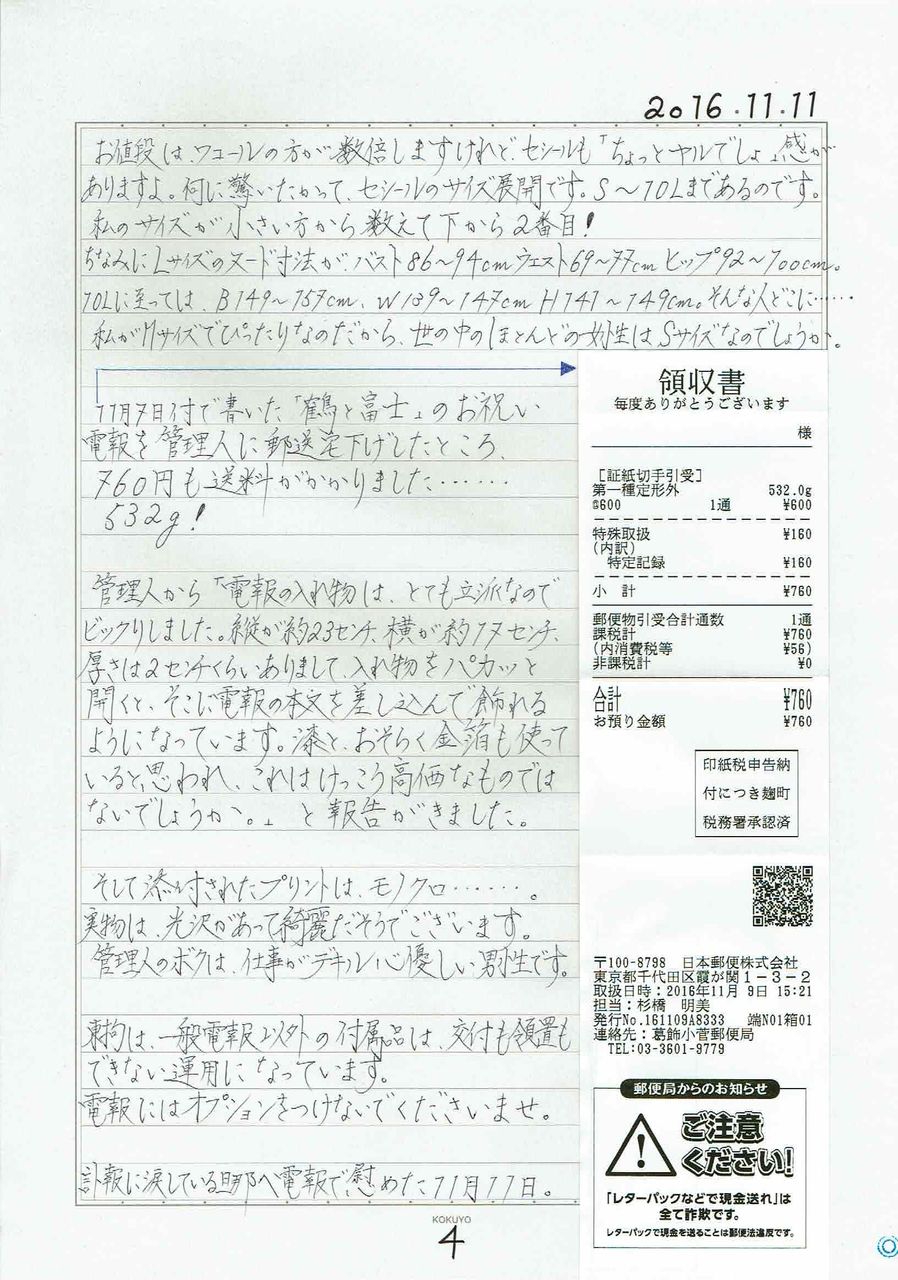 2016.11.11
お値段は、ワコールの方が数倍しますけれど、セシールも「ちょっとヤルでしょ」感が
ありますよ。何に驚いたかって、セシールのサイズ展開です。S～10Lまであるのです。
私のサイズが小さい方から数えて下から2番目!
ちなみにLサイズのヌード寸法が、バスト86～94cmウェスト69～77cmヒップ92～100cm。
10Lに至っては、B149～157cm、W139～147cm H141～149cm。そんな人どこに……
私がMサイズでぴったりなのだから、世の中のほとんどの女性はSサイズなのでしょうか。
11月7日付で書いた「鶴と富士」のお祝い
電報を管理人に郵送宅下げしたところ、
760円も送料がかかりました……
532g!
管理人から「電報の入れ物は、とても立派なので
ビックリしました。縦が約23センチ、横が約17センチ、
厚さは2センチくらいありまして、入れ物をパカッと
開くと、そこに電報の本文を差し込んで飾れる
ようになっています。漆と、おそらく金箔も使って
いると思われ、これはけっこう高価なものでは
ないでしょうか。」と報告がきました。
そして添付されたプリントは、モノクロ……。
実物は、光沢があって綺麗だそうでございます。
管理人のボクは、仕事がデキル心優しい男性です。
東拘は、一般電報以外の付属品は、交付も領置も
できない運用になっています。
電報にはオプションをつけないでくださいませ。
訃報に涙している旦那へ電報で慰めた11月11日。
KOKUYO
4
領収書
毎度ありがとうございます
様
[証紙切手引受]
第一種定形外 532.0g
@600 1通 ¥600
特殊取扱 ¥160
(内訳)
特定記録 ¥160
小 計 ¥760
郵便物引受合計通数 1通
課税計 ¥760
(内消費税等 ¥56)
非課税計 ¥0
合計 ¥760
お預り金額 ¥760
印紙税申告納
付につき麹町
税務署承認済
〒100-8798 日本郵便株式会社
東京都千代田区霞が関1-3-2
取扱日時:2016年11月 9日 15:21
担当:杉橋 明美
発行No.161109A8333 端N01箱01
連絡先:葛飾小菅郵便局
TEL:03-3601-9779
郵便局からのお知らせ
ご注意
ください!
「レターパックなどで現金送れ」は
全て詐欺です。
レターパックで現金を送ることは郵便法違反です。